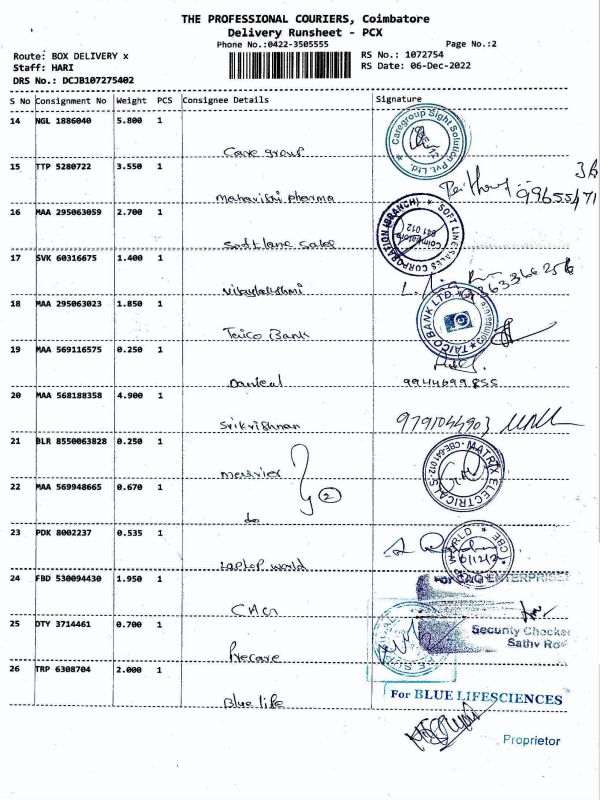 THE PROFESSIONAL COURIERS, Coimbatore
Delivery Runsheet - PCX
Phone No.:0422-3505555 Page No.:2
Route: BOX DELIVERY x RS No.: 1072754
Staff: HARI RS Date: 06-Dec-2022
DRS No.: DCJB107275402
S No Consignment No Weight PCS Consignee Details Signature
14 NGL 1886040 5.800 1
Care group
Caregroup Sight Solution Pvt. Ltd.
15 TTP 5280722 3.550 1
Mahavishi pharma
16 MAA 295063059 2.700 1
Softlane Sales
SOFT LINE SALES CORPORATION (BRANCH) Coimbatore 641 012
17 SVK 60316675 1.400 1
Vijayalakshmi
18 MAA 295063023 1.850 1
Taico Bank
TAICO BANK LTD. Coimbatore
19 MAA 569116575 0.250 1
Danieal 9944699855
20 MAA 568188358 4.900 1
Srikrishnan 9791044903
21 BLR 8550063828 0.250 1
MATRIX ELECTRICALS CBE-641 012
22 MAA 569948665 0.670 1
do 2
23 PDK 8002237 0.535 1
Laptop world
WORLD CBE
24 FBD 530094430 1.950 1
ENTERPRISE
CACI
25 DTY 3714461 0.700 1
Security Checked
Precare
26 TRP 6308704 2.000 1
For BLUE LIFESCIENCES
Blue life
Proprietor